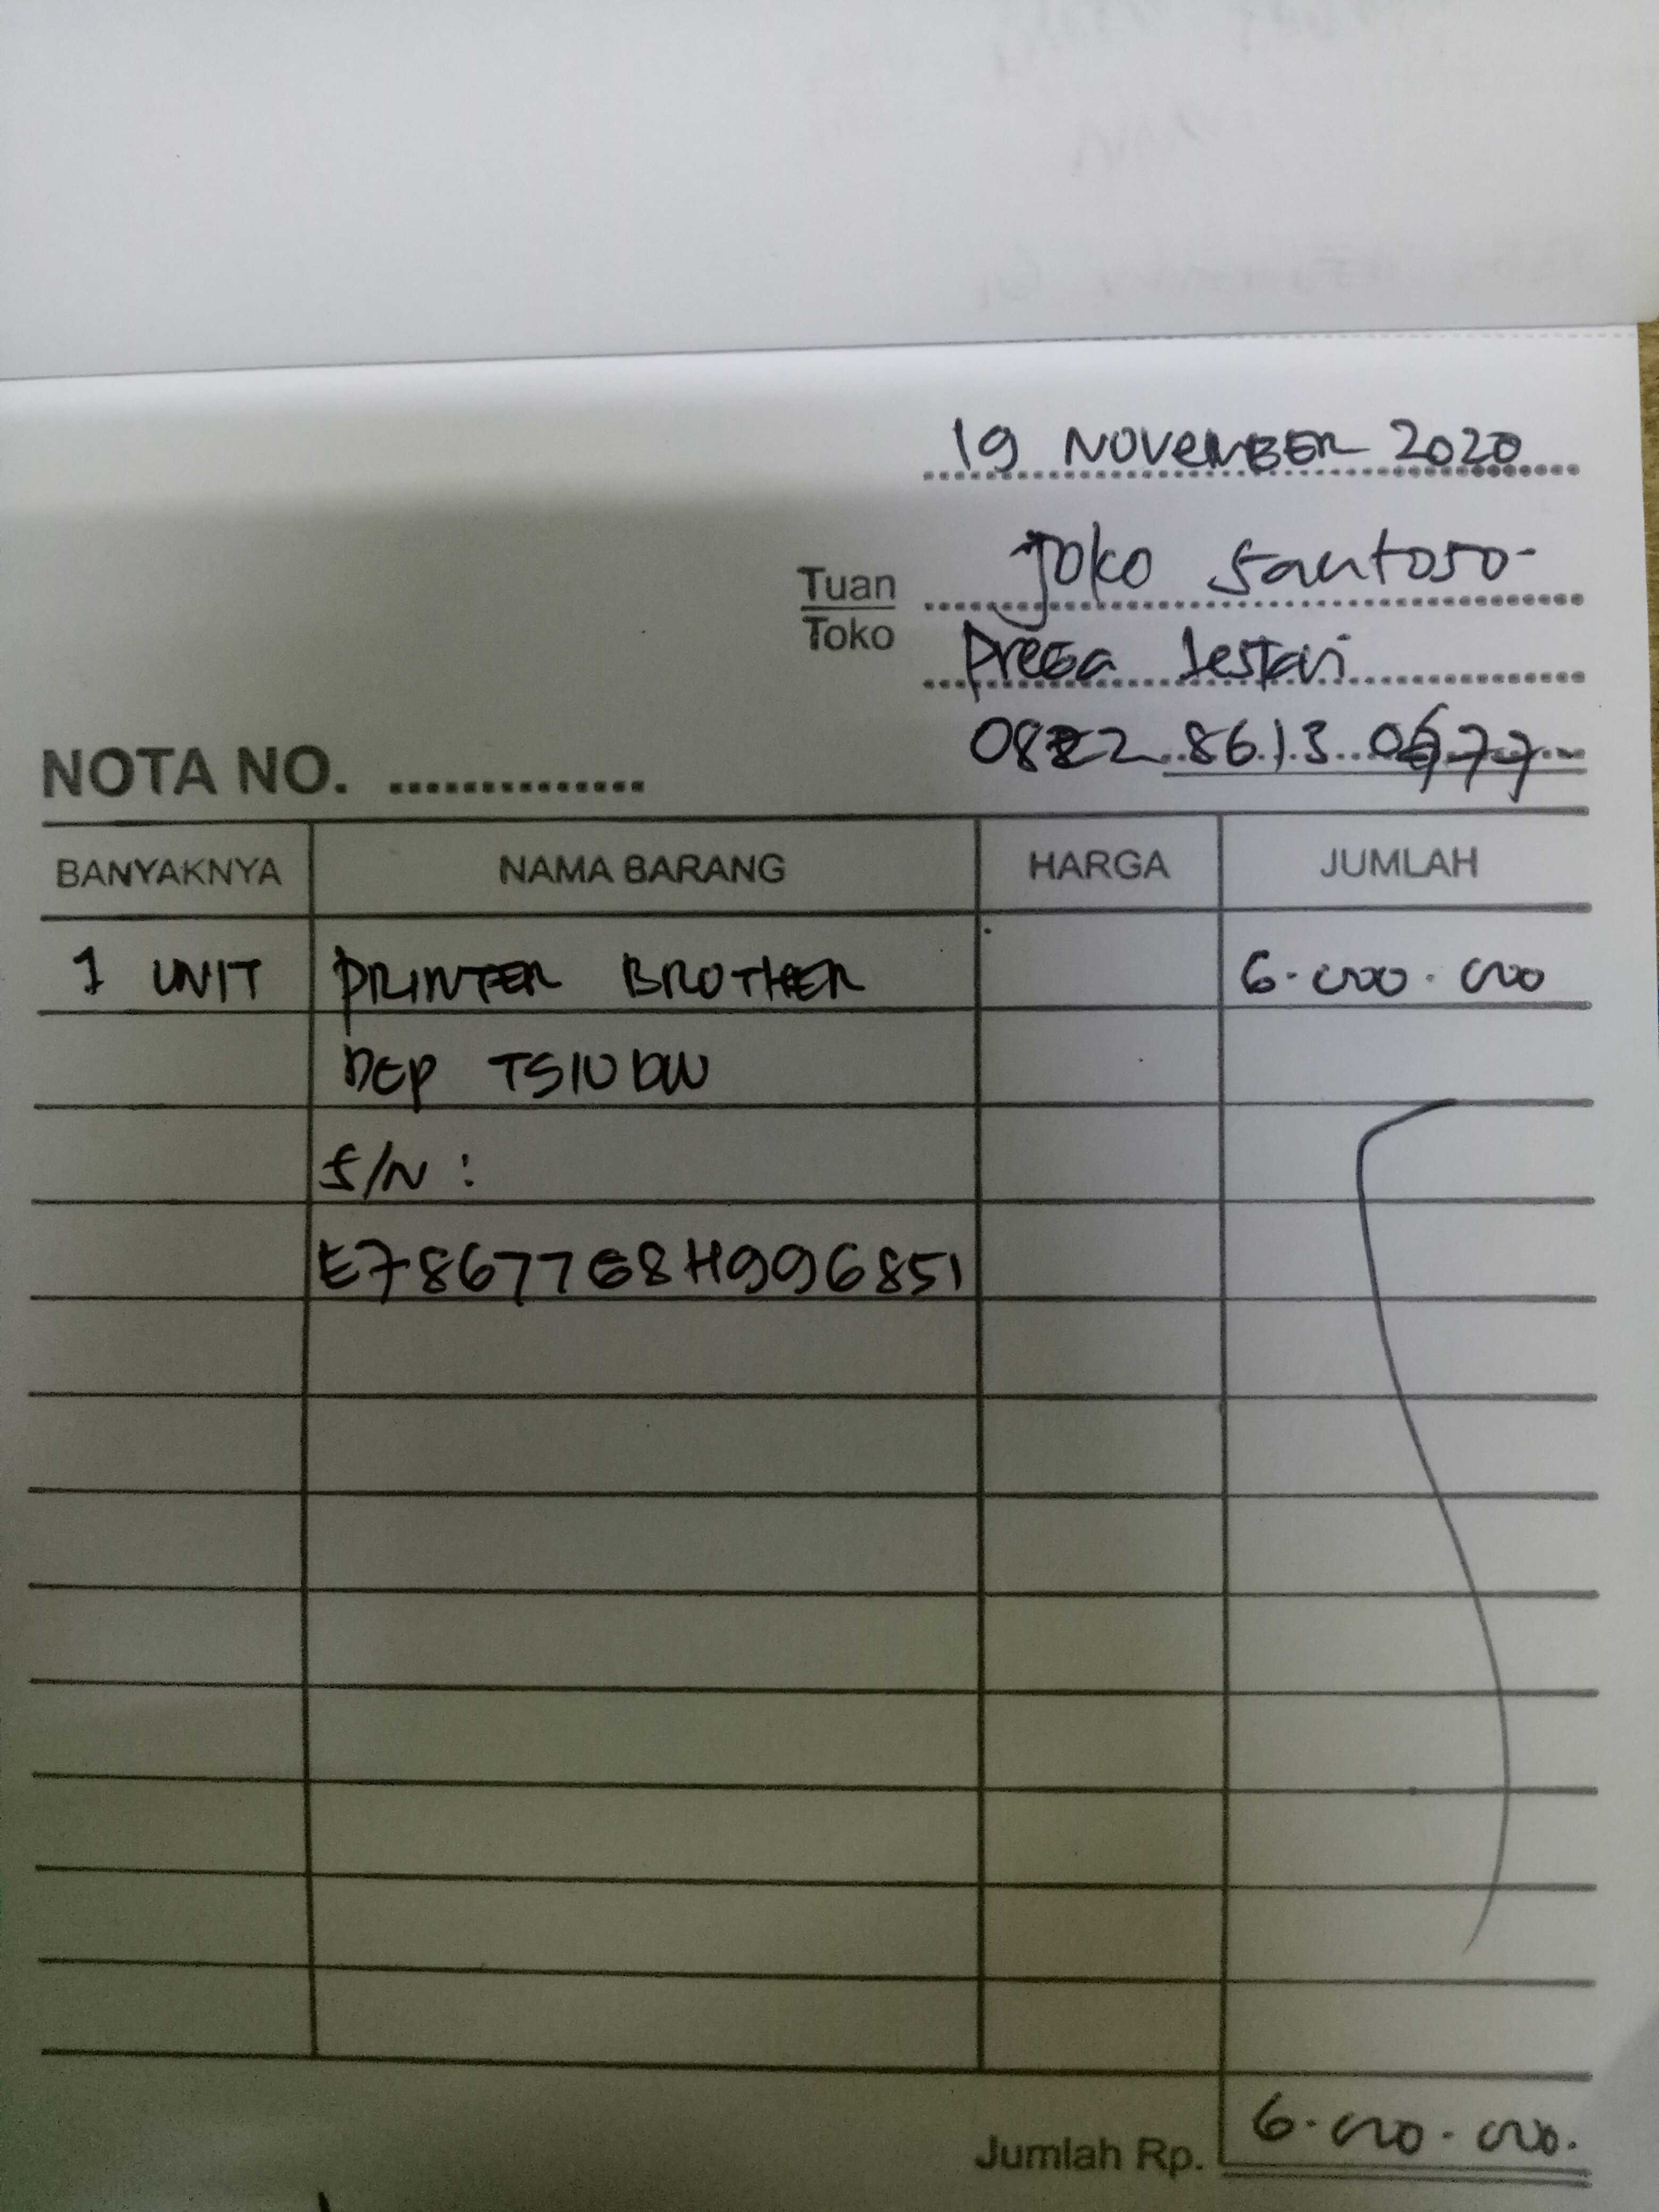 19 NOVEMBER 2020
Tuan Joko Santoso
Toko
lestari
NOTA NO. ..............
BANYAKNYA NAMA BARANG HARGA JUMLAH
1 UNIT PRINTER BROTHER 6.000.000
DCP T510DW
S/N :
E78677G8H996851
Jumlah Rp. 6.000.000.